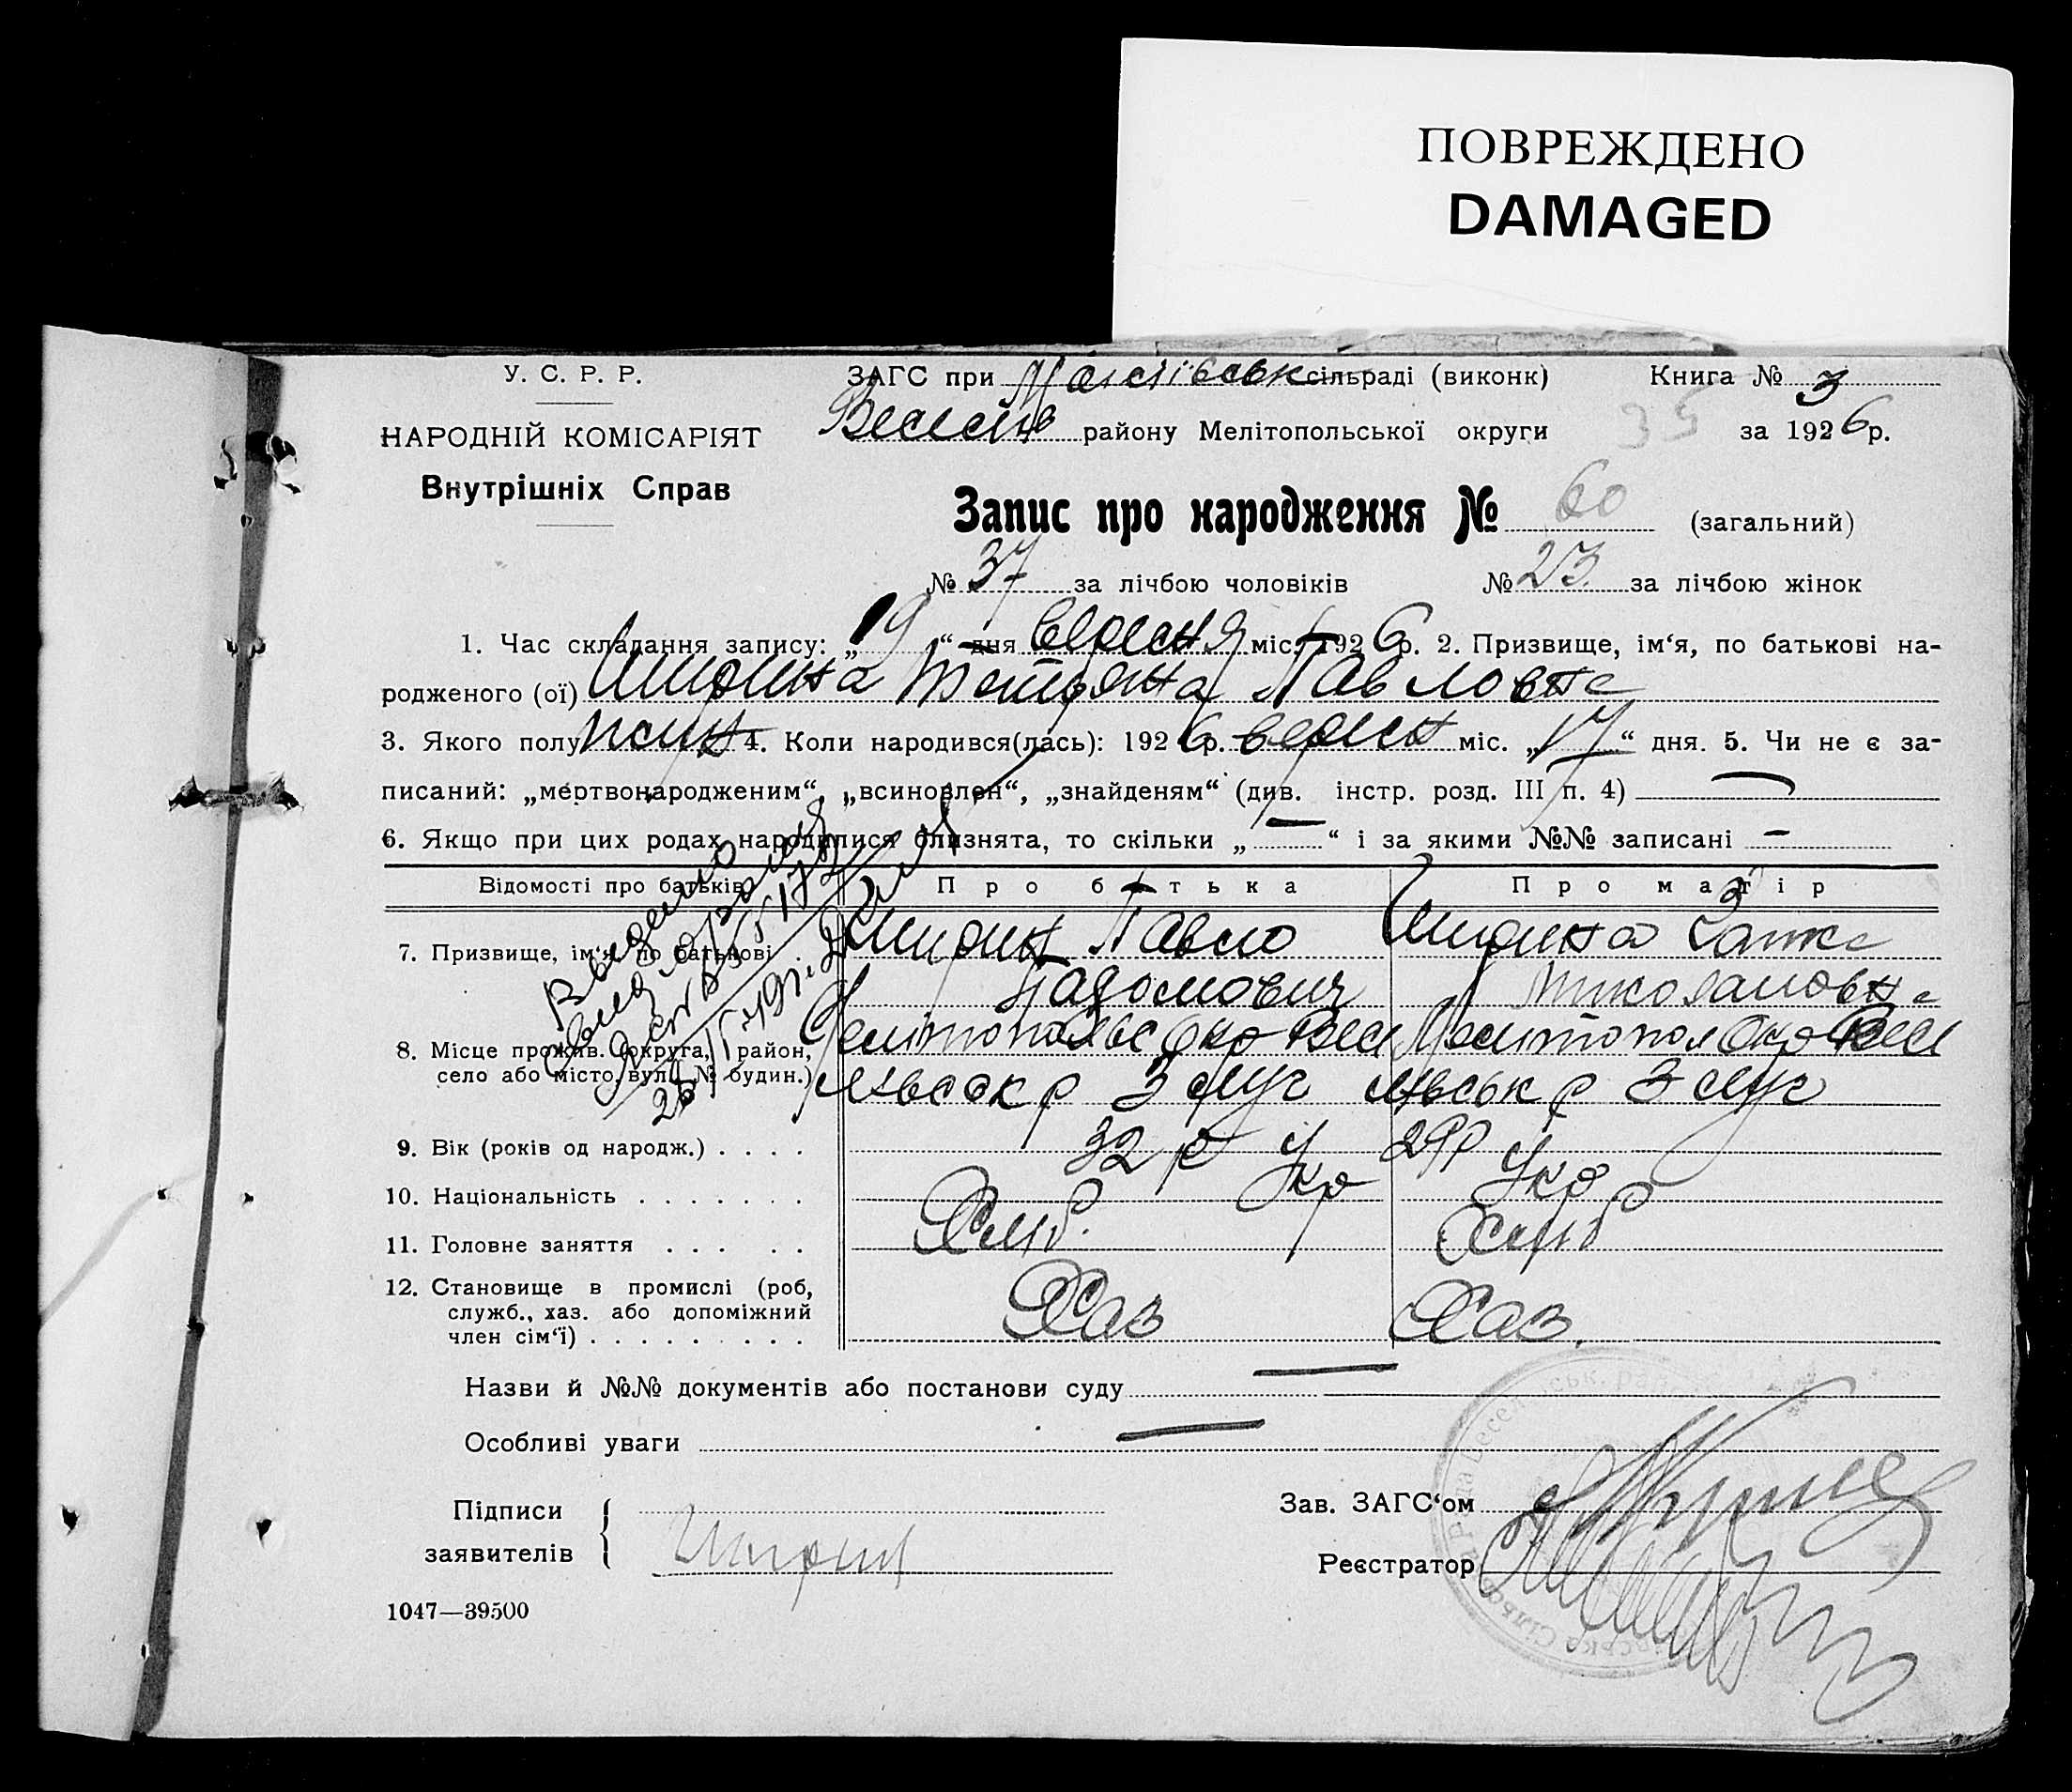 ПОВРЕЖДЕНО
DAMAGED
У. С. Р. Р.
НАРОДНІЙ КОМІСАРІЯТ
Внутрішніх Справ
ЗАГС при сільраді (виконк) Книга № 3
району Мелітопольської округи 35 за 1926 р.
Запис про народження № 60 (загальний)
№ 37 за лічбою чоловіків № 23 за лічбою жінок
1. Час складання запису: „19“ дня вересня міс. 1926 р. 2. Призвище, ім‘я, по батькові на-
родженого (ої) Ширина Тетяна Павловна
3. Якого полу 4. Коли народився(лась): 1926 р. вересн міс. „17“ дня. 5. Чи не є за-
писаний: „мертвонародженим“, „всиновлен“, „знайденям“ (див. інстр. розд. III п. 4) —
6. Якщо при цих родах народилися близнята, то скільки „—“ і за якими №№ записані —
Відомості про батьків Про батька Про матір
7. Призвище, ім‘я, по батькові Ширин Павло Ширина
8. Місце прожив. (округа, район,
село або місто, вул. № будин.)
9. Вік (років од народж.) . . . . 32 р 29р
10. Національність . . . . . . . Укр Укр
11. Головне заняття . . . . . Хліб. Хліб
12. Становище в промислі (роб,
служб., хаз. або допоміжний
член сім‘ї) . . . . . . . . . Хаз Хаз.
Назви й №№ документів або постанови суду —
Особливі уваги —
Підписи
заявителів Ширин
Зав. ЗАГС‘ом
Реєстратор
1047—39500